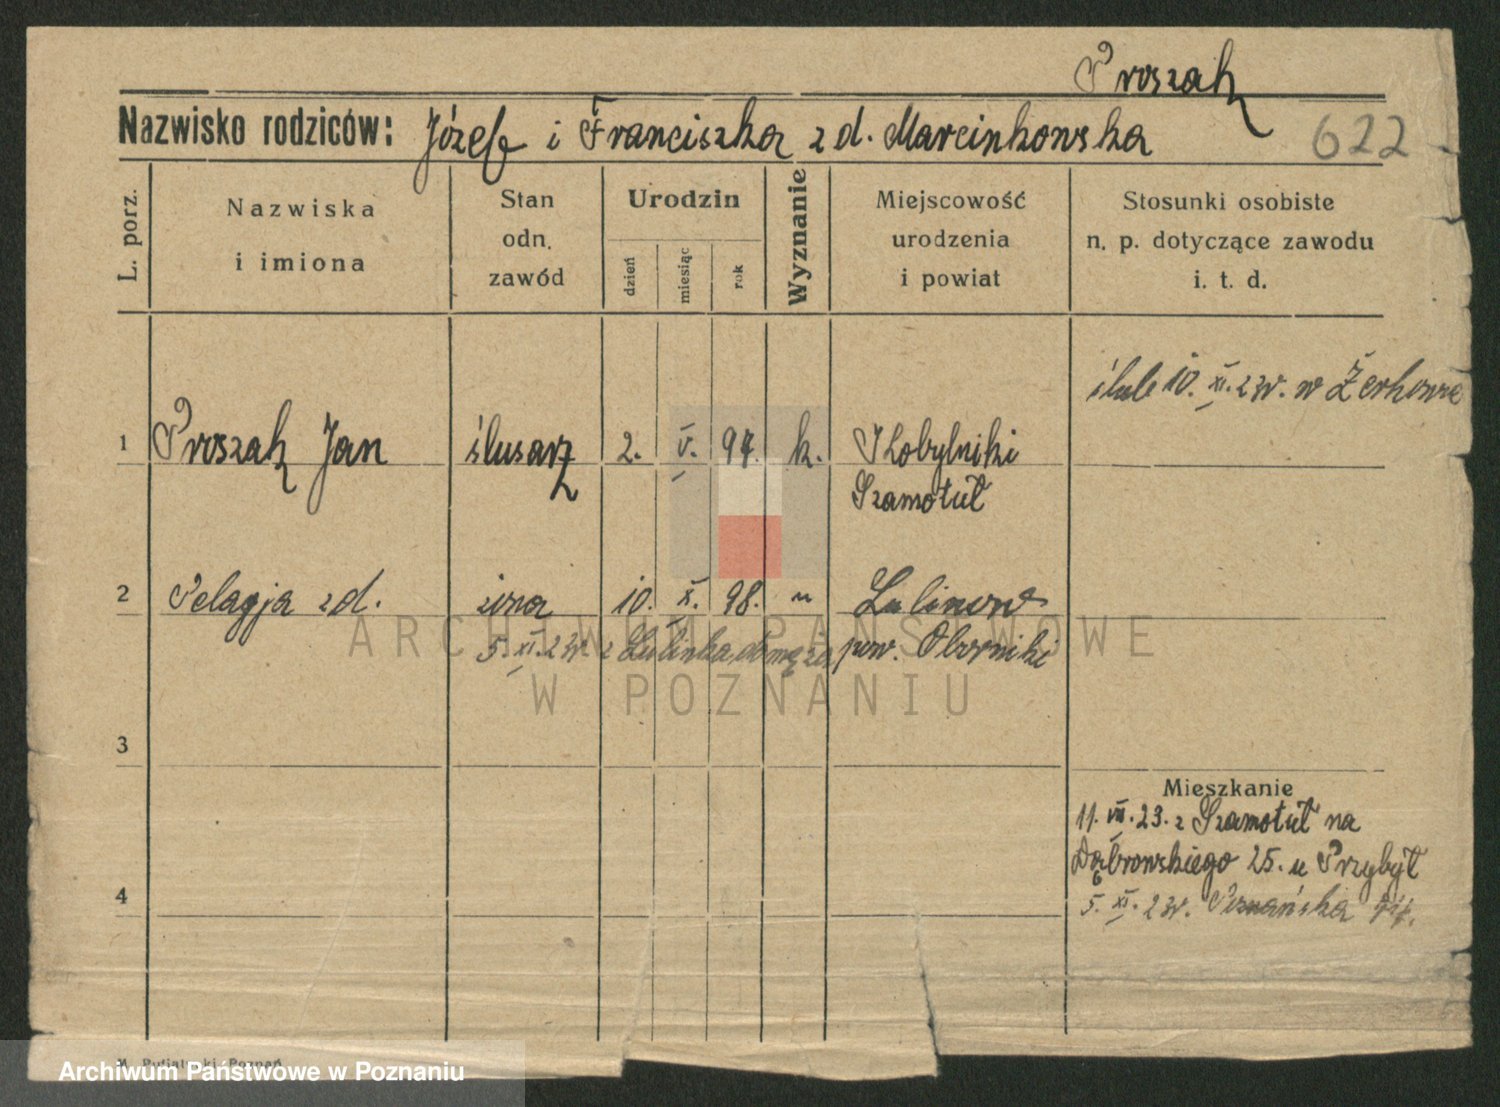 Proszak
Nazwisko rodziców: Józef i Franciszka z d. Marcinkowska
622
L. porz.
Nazwiska
i imiona
Stan
odn.
zawód
Urodzin
dzień
miesiąc
rok
Wyznanie
Miejscowość
urodzenia
i powiat
Stosunki osobiste
n. p. dotyczące zawodu
i. t. d.
10. XI. 23r. w
1 Proszak Jan ślusarz 2. V. 97. k. Kobylniki
Szamotuł
2 Pelagja z d. żona 10. X. 98. " Lulinow
5. XI. 23r. z Lulinka do męża pow. Oborniki
ARCHIWUM PAŃSTWOWE
W POZNANIU
3
Mieszkanie
11. VII. 23. z Szamotuł na
Dąbrowskiego 25. u Przybył
4
5. XI. 23r. Poznańska
Poznań
Archiwum Państwowe w Poznaniu